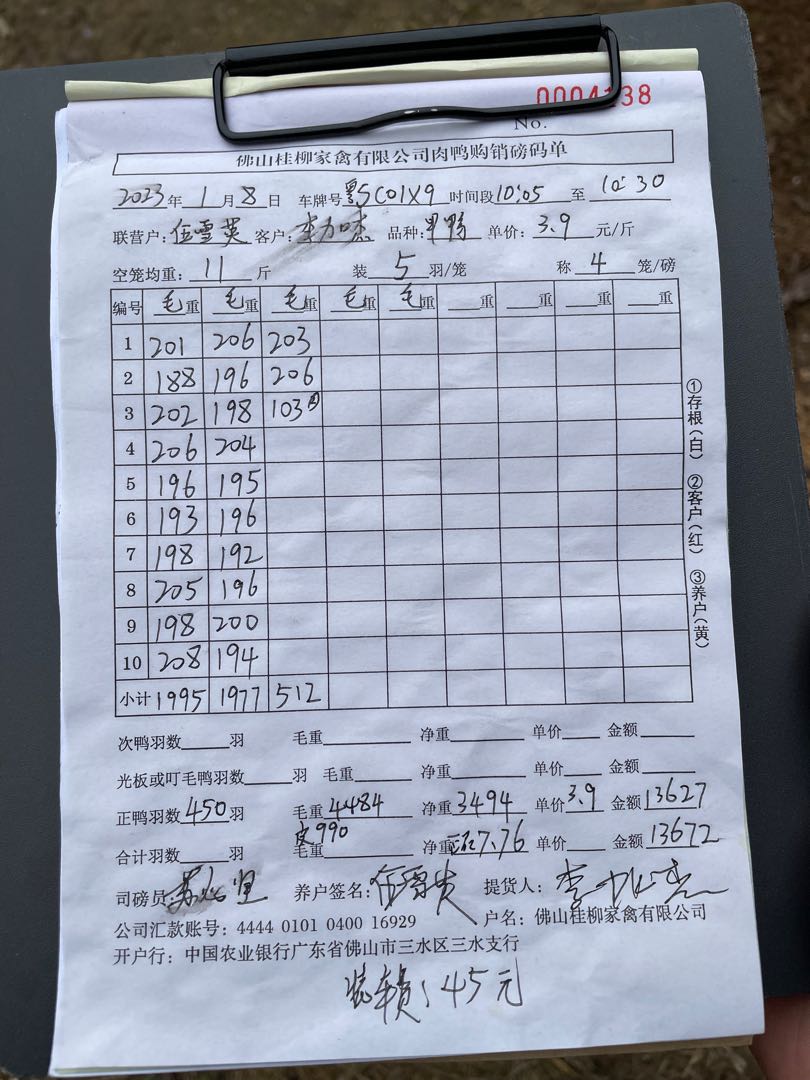 0004138
No.
佛山桂柳家禽有限公司肉鸭购销磅码单
2023年 1 月 8 日 车牌号 粤SC01X9 时间段 10:05 至 10:30
联营户: 伍雪英 客户: 李力 品种: 甲鸭 单价: 3.9 元/斤
空笼均重: 11 斤 装 5 羽/笼 称 4 笼/磅
编号 毛重 毛重 毛重 毛重 毛重 重 重 重 重
1 201 206 203
2 188 196 206
3 202 198 103
4 206 204
5 196 195
6 193 196
7 198 192
8 205 196
9 198 200
10 208 194
小计 1995 1977 512
①存根(白) ②客户(红) ③养户(黄)
次鸭羽数 羽 毛重 净重 单价 金额
光板或叮毛鸭羽数 羽 毛重 净重 单价 金额
正鸭羽数 450 羽 毛重 4484 净重 3494 单价 3.9 金额 13627
合计羽数 羽 皮990 毛重 净重 7.76 单价 金额 13672
司磅员: 养户签名: 提货人:
公司汇款账号: 4444 0101 0400 16929 户名: 佛山桂柳家禽有限公司
开户行: 中国农业银行广东省佛山市三水区三水支行
装车费: 45元